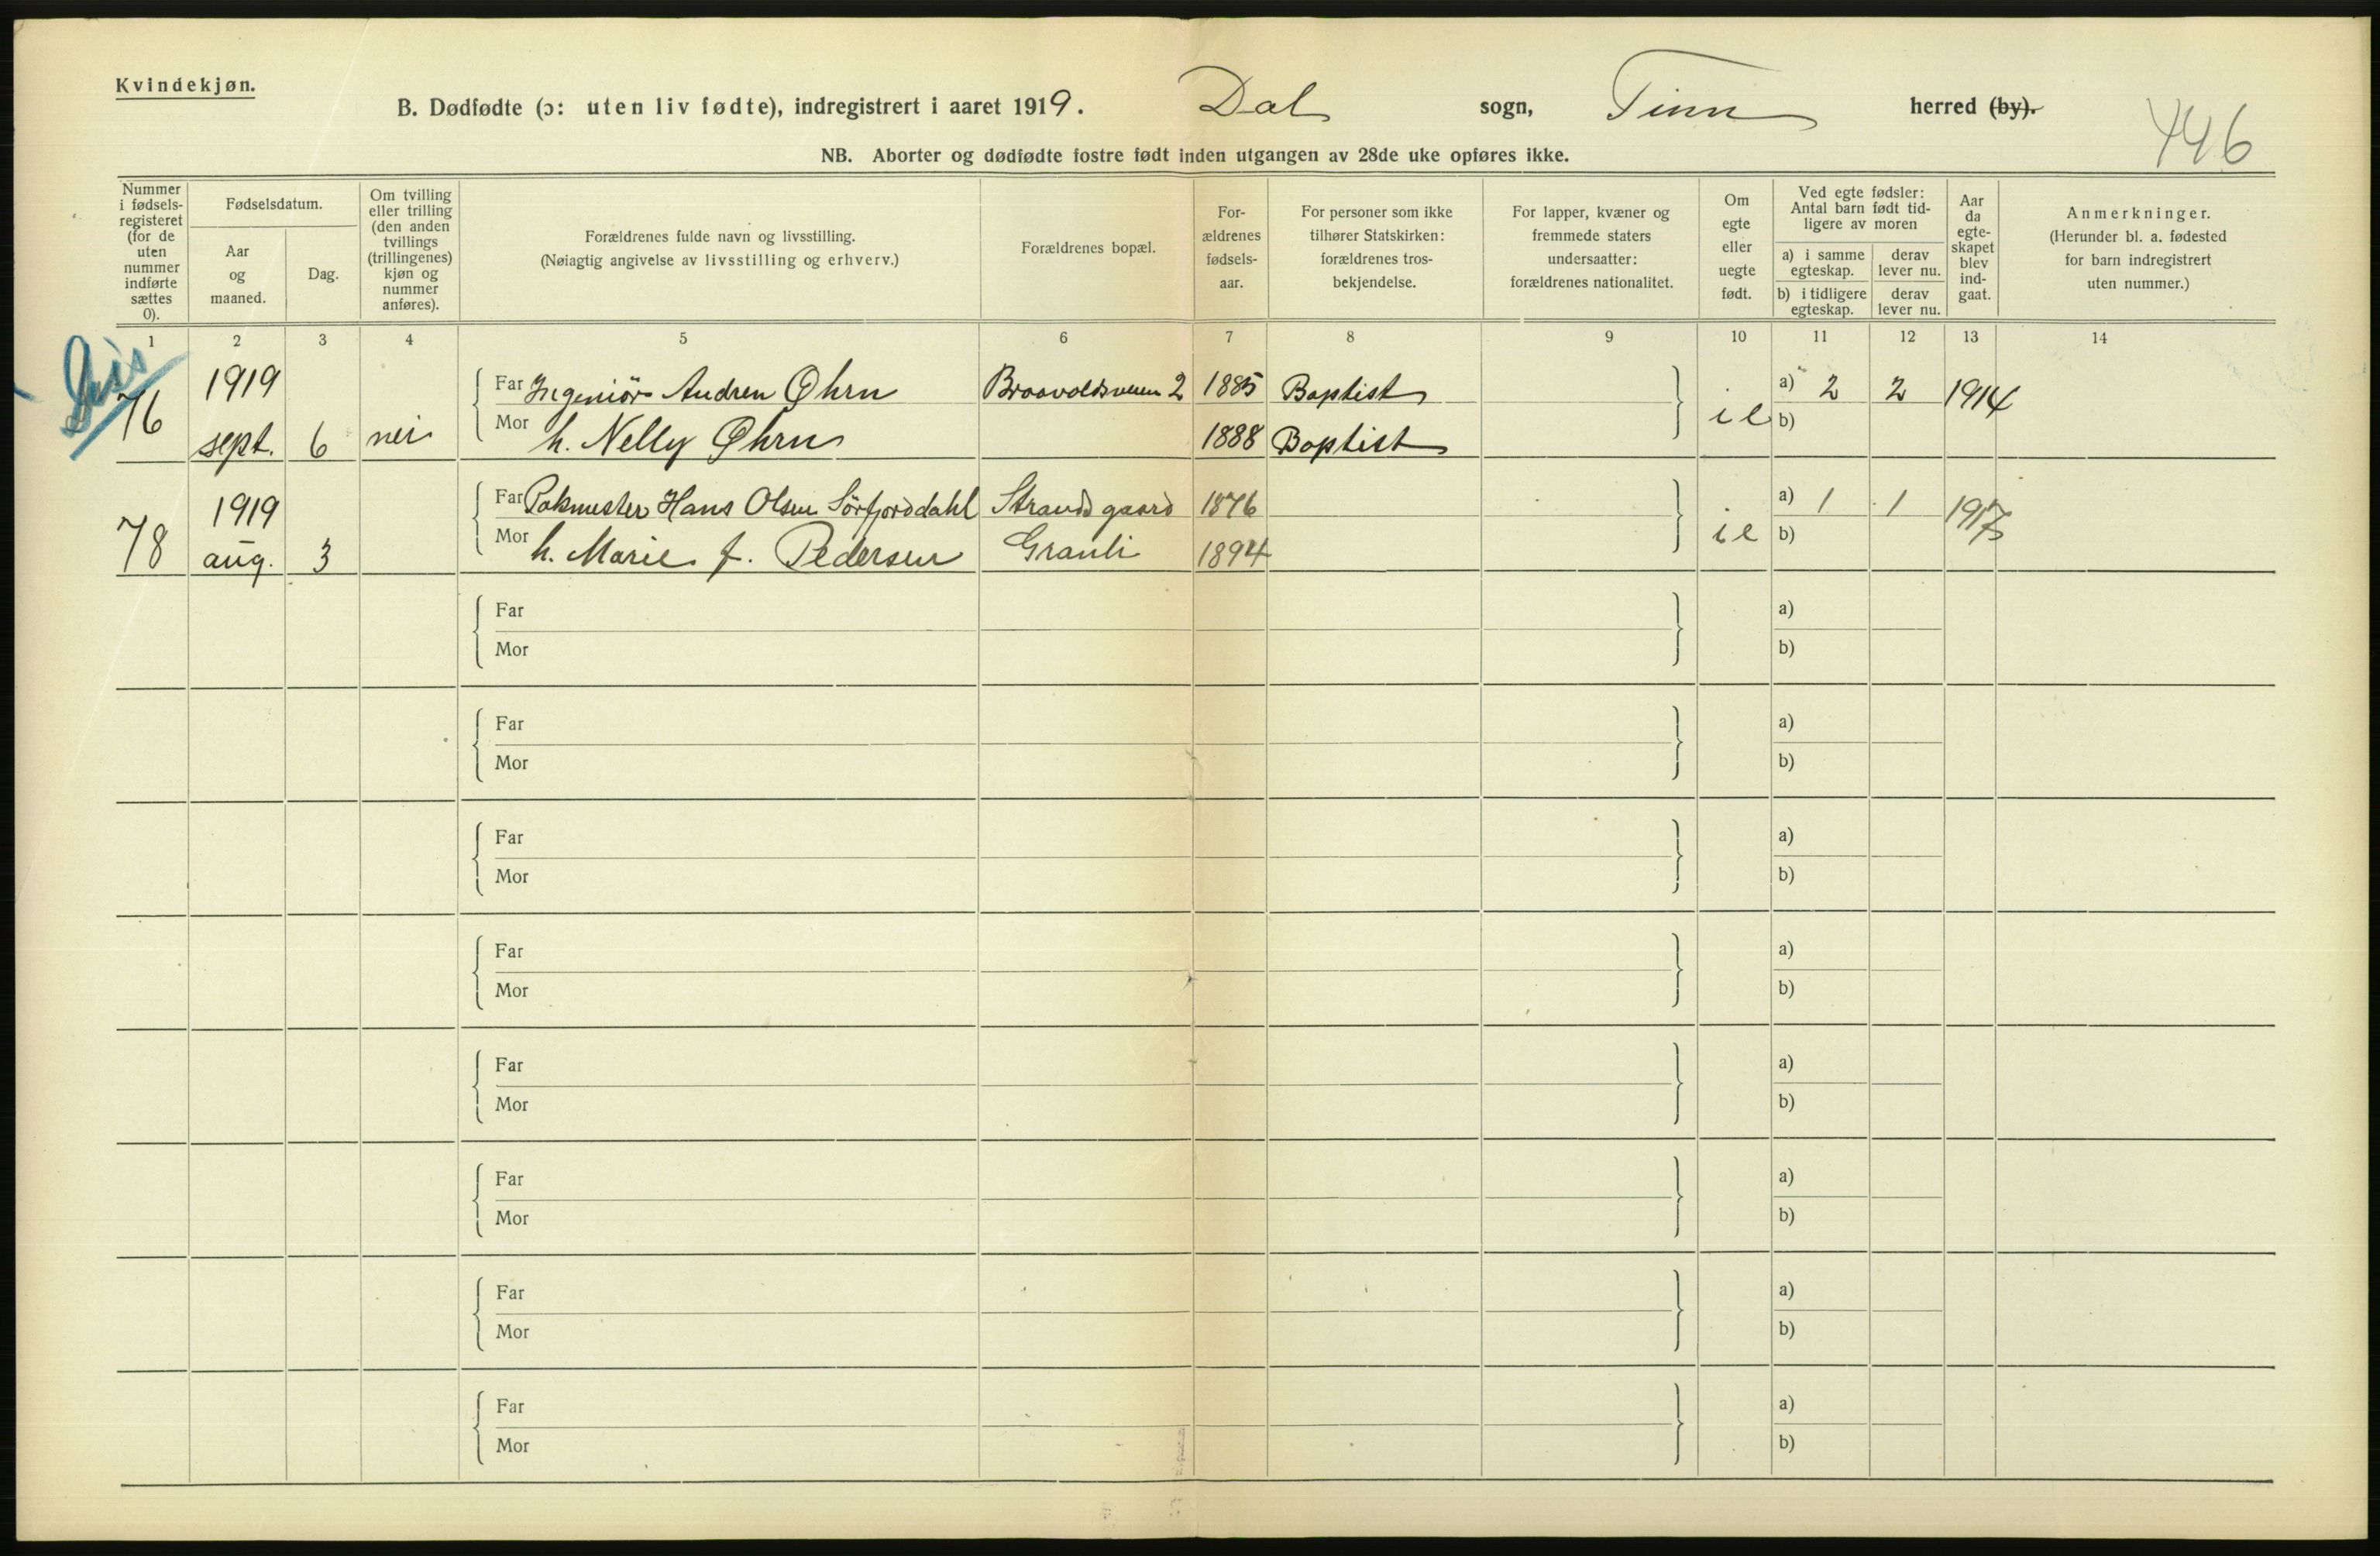 Kvindekjøn.
B. Dødfødte (ɔ: uten liv fødte), indregistrert i aaret 1919. Dal sogn, Tinn herred (by).
446
NB. Aborter og dødfødte fostre født inden utgangen av 28de uke opføres ikke.
Nummer i fødsels-registeret (for de uten nummer indførte sættes 0).
Fødselsdatum.
Aar og maaned.
Dag.
Om tvilling eller trilling (den anden tvillings (trillingenes) kjøn og nummer anføres).
Forældrenes fulde navn og livsstilling.
(Nøiagtig angivelse av livsstilling og erhverv.)
Forældrenes bopæl.
For-ældrenes fødsels-aar.
For personer som ikke tilhører Statskirken: forældrenes tros-bekjendelse.
For lapper, kvæner og fremmede staters undersaatter: forældrenes nationalitet.
Om egte eller uegte født.
Ved egte fødsler: Antal barn født tid-ligere av moren
a) i samme egteskap.
derav lever nu.
b) i tidligere egteskap.
derav lever nu.
Aar da egte-skapet blev ind-gaat.
Anmerkninger.
(Herunder bl. a. fødested for barn indregistrert uten nummer.)
1 2 3 4 5 6 7 8 9 10 11 12 13 14
76 1919 Far Ingeniör Andren Øhrn 2 1885 Baptist a) 2 2 1914
sept. 6 nei Mor h. Nelly Øhrn 1888 Baptist b)
78 1919 Far Hans Olsen Sörfjorddahl Strandgaard 1876 a) 1 1
aug. 3 Mor h. Marie f. Pedersen Granli 1894 b)
Far a)
Mor b)
Far a)
Mor b)
Far a)
Mor b)
Far a)
Mor b)
Far a)
Mor b)
Far a)
Mor b)
Far a)
Mor b)
Far a)
Mor b)